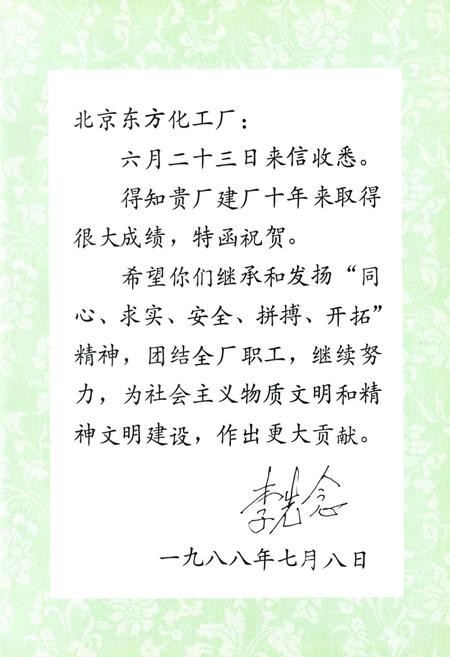 北京东方化工厂：
六月二十三日来信收悉。
得知贵厂建厂十年来取得
很大成绩，特函祝贺。
希望你们继承和发扬“同
心、求实、安全、拼搏、开拓”
精神，团结全厂职工，继续努
力，为社会主义物质文明和精
神文明建设，作出更大贡献。
李先念
一九八八年七月八日